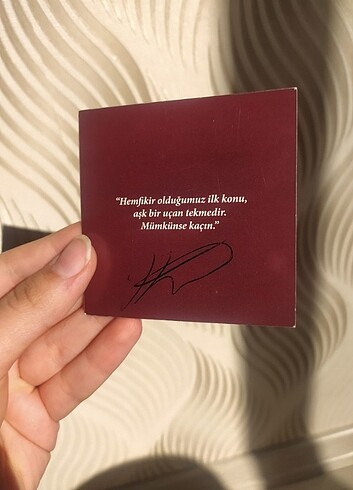 “Hemfikir olduğumuz ilk konu,
aşk bir uçan tekmedir.
Mümkünse kaçın.”